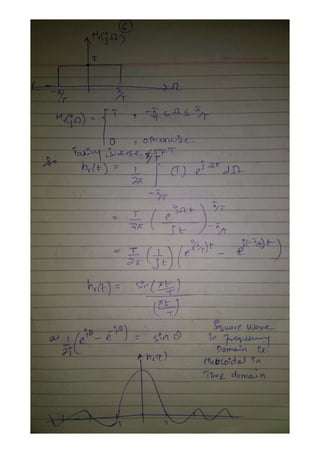 6
Hr(jΩ)
T
-π/T π/T → Ω
Hr(jΩ) = { T , -π/T ≤ Ω ≤ π/T
0 , otherwise.
So Taking inverse
hr(t) = 1/2π ∫_{-π/T}^{π/T} (T) e^{jΩt} dΩ
= T/2π ( e^{jΩt} / jt )_{-π/T}^{π/T}
= T/2π (1/jt) ( e^{j(π/T)t} - e^{j(-π/T)t} )
hr(t) = sin(πt/T) / (πt/T)
as 1/2j (e^{jθ} - e^{-jθ}) = sin θ
Square wave
in frequency
Domain is
in
Time domain
hr(t)